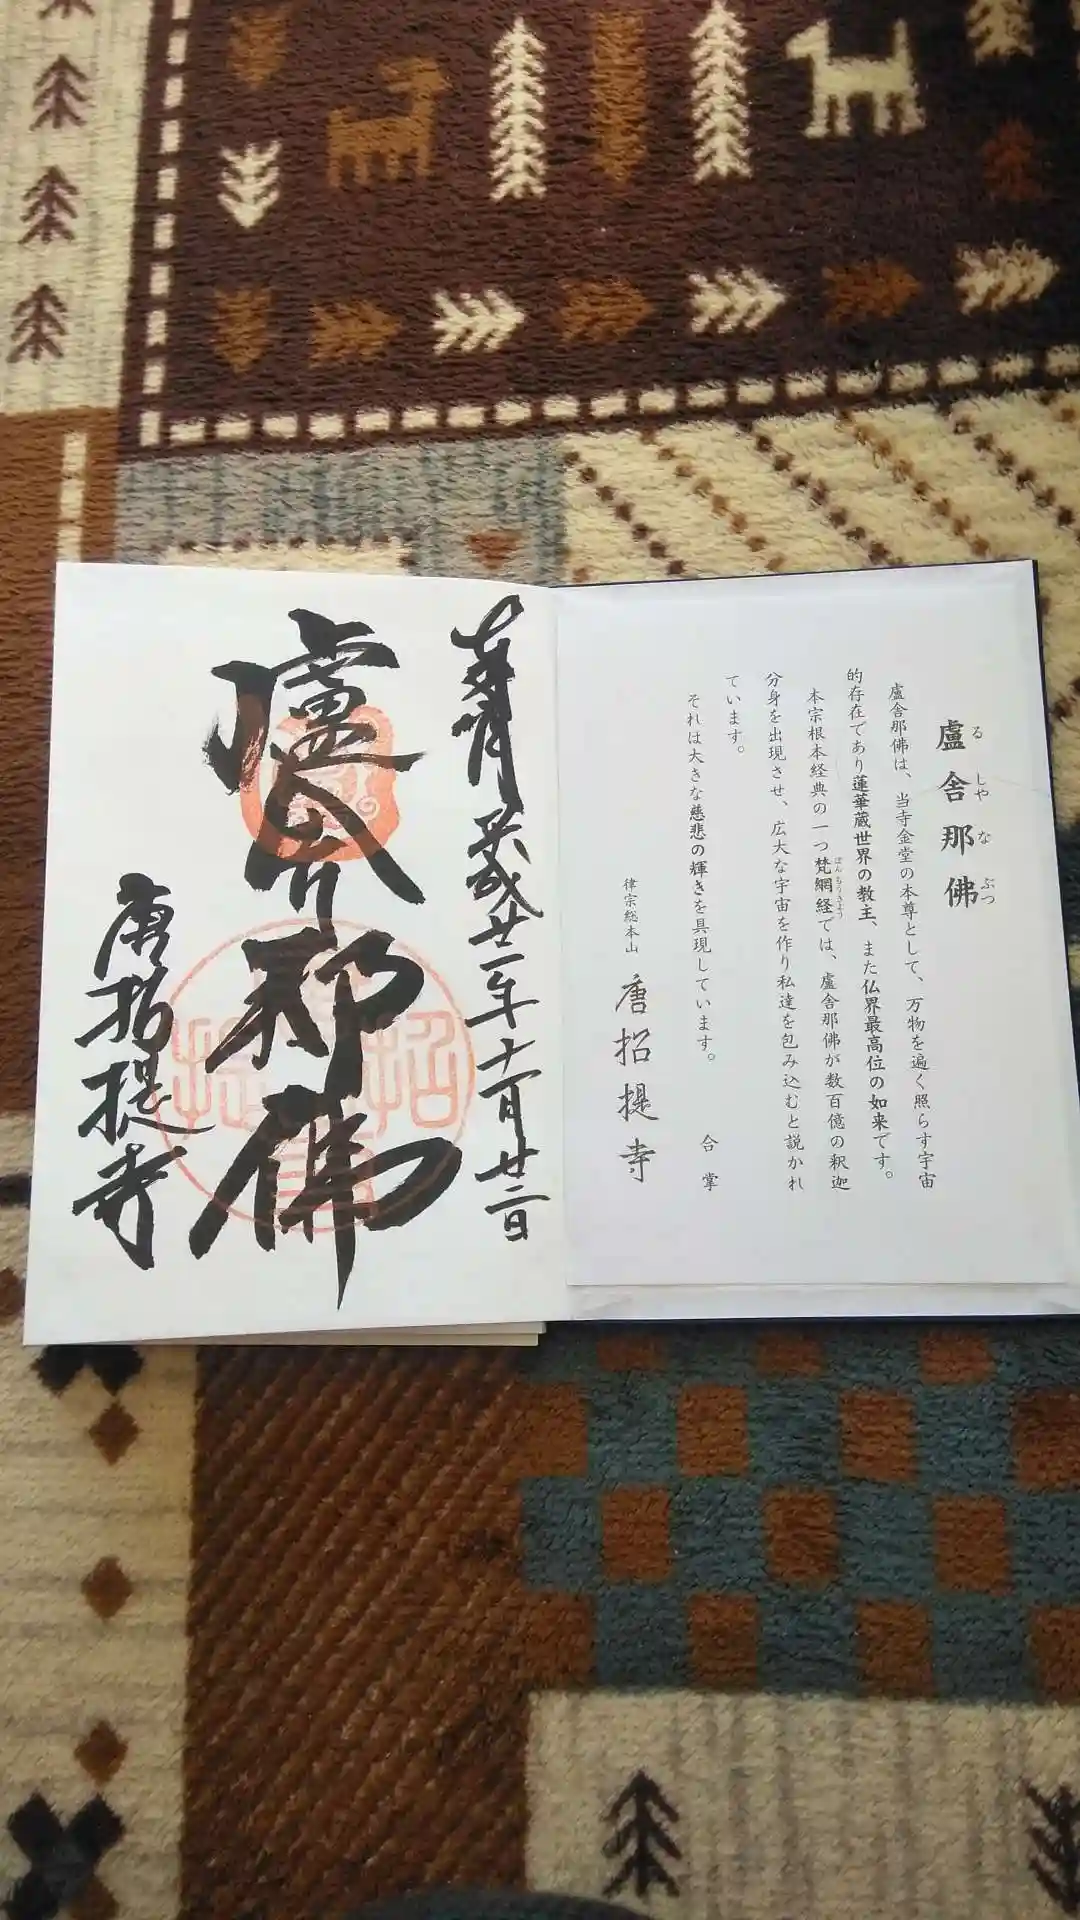 盧舎那佛
るしゃなぶつ
盧舎那佛は、当寺金堂の本尊として、万物を遍く照らす宇宙
的存在であり蓮華蔵世界の教主、また仏界最高位の如来です。
本宗根本経典の一つ梵網経では、盧舎那佛が数百億の釈迦
ぼんもうきょう
分身を出現させ、広大な宇宙を作り私達を包み込むと説かれ
ています。
それは大きな慈悲の輝きを具現しています。
合掌
律宗総本山 唐招提寺
奉拝 平成廿一年十一月廿二日
盧舎那佛
唐招提寺